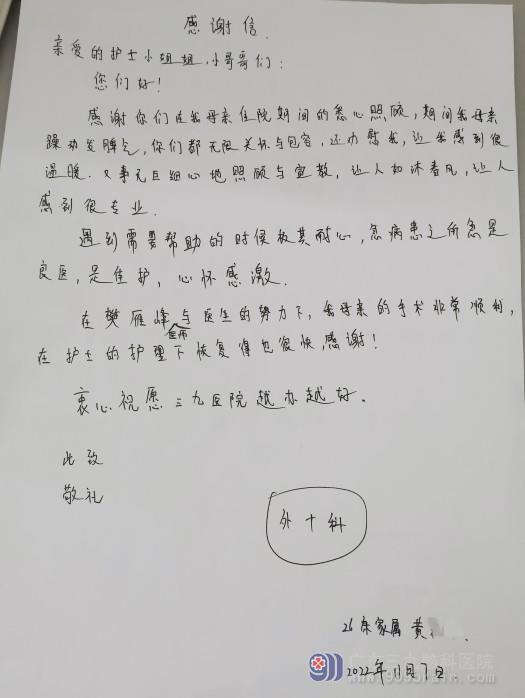 感谢信.
亲爱的护士小姐姐、小哥哥们:
您们好!
感谢你们在我母亲住院期间的悉心照顾,期间我母亲
躁动发脾气,你们都无限关怀与包容,还力慰我,让我感到很
温暖.又事无巨细心地照顾与宣教,让人如沐春风,让人
感到很专业.
遇到需要帮助的时候极其耐心,急病患之所急是
良医,是佳护,心怀感激.
在樊雁峰与医生的努力下,我母亲的手术非常顺利,
在护士的护理下恢复得也很快,感谢!
衷心祝愿三九医院越办越好.
此致
敬礼
外十科
26床家属 黄
2022年11月7日
广东三九脑科医院
www.9095brain.com